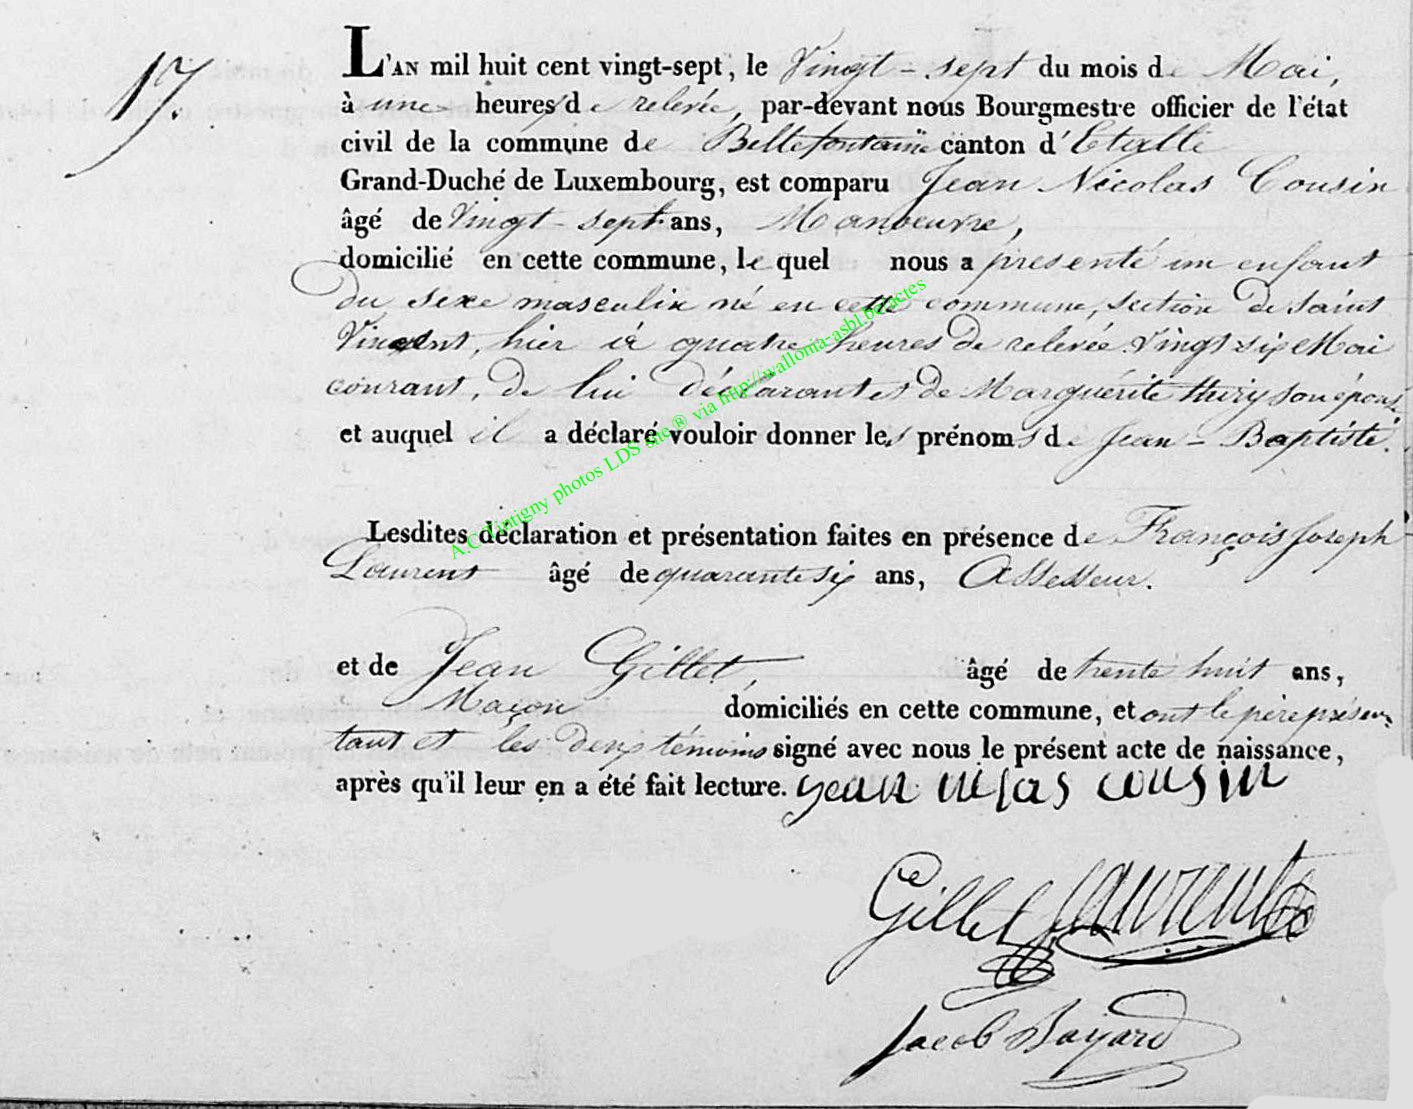 17.
L'AN mil huit cent vingt-sept, le Vingt-sept du mois de Mai,
à une heures de relevée, par-devant nous Bourgmestre officier de l'état
civil de la commune de Bellefontaine canton d'Etalle
Grand-Duché de Luxembourg, est comparu Jean Nicolas Cousin
âgé de Vingt-sept ans, Manoeuvre,
domicilié en cette commune, le quel nous a présenté un enfant
du sexe masculin né en cette commune, section de Saint
Vincent, hier à quatre heures de relevée Vingt six Mai
courant, de lui déclarant et de Marguérite thiry son épouse
et auquel il a déclaré vouloir donner les prénoms de Jean-Baptiste.
Lesdites déclaration et présentation faites en présence de François Joseph
Laurent âgé de quarante six ans, Assesseur.
et de Jean Gillet, âgé de trente huit ans,
Maçon domiciliés en cette commune, et ont le père présen-
tant et les deux témoins signé avec nous le présent acte de naissance,
après qu'il leur en a été fait lecture. jean nicolas cousin
Gillet Laurent
Jacob Bayard
A.C. Tintigny photos LDS site ® via http://wallonia-asbl.be/actes